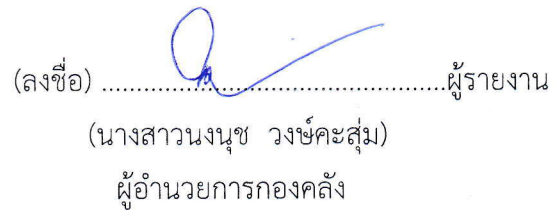 (ลงชื่อ) ............................................ผู้รายงาน
(นางสาวนงนุช วงษ์คะสุ่ม)
ผู้อำนวยการกองคลัง